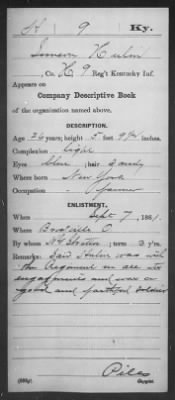 H 9 Ky.
Simeon Hulin
, Co. H, 9 Reg't Kentucky Inf.
Appears on
Company Descriptive Book
of the organization named above.
DESCRIPTION.
Age 26 years; height 5 feet 9 inches.
Complexion light
Eyes blue ; hair sandy
Where born New York
Occupation Farmer
ENLISTMENT.
When Sept 7, 1861.
Where O
By whom ; term 3 y'rs.
Remarks: Said Hulin was with
the Regiment in all its
engagements and was a
good and faithful soldier
Piles
Copyist.